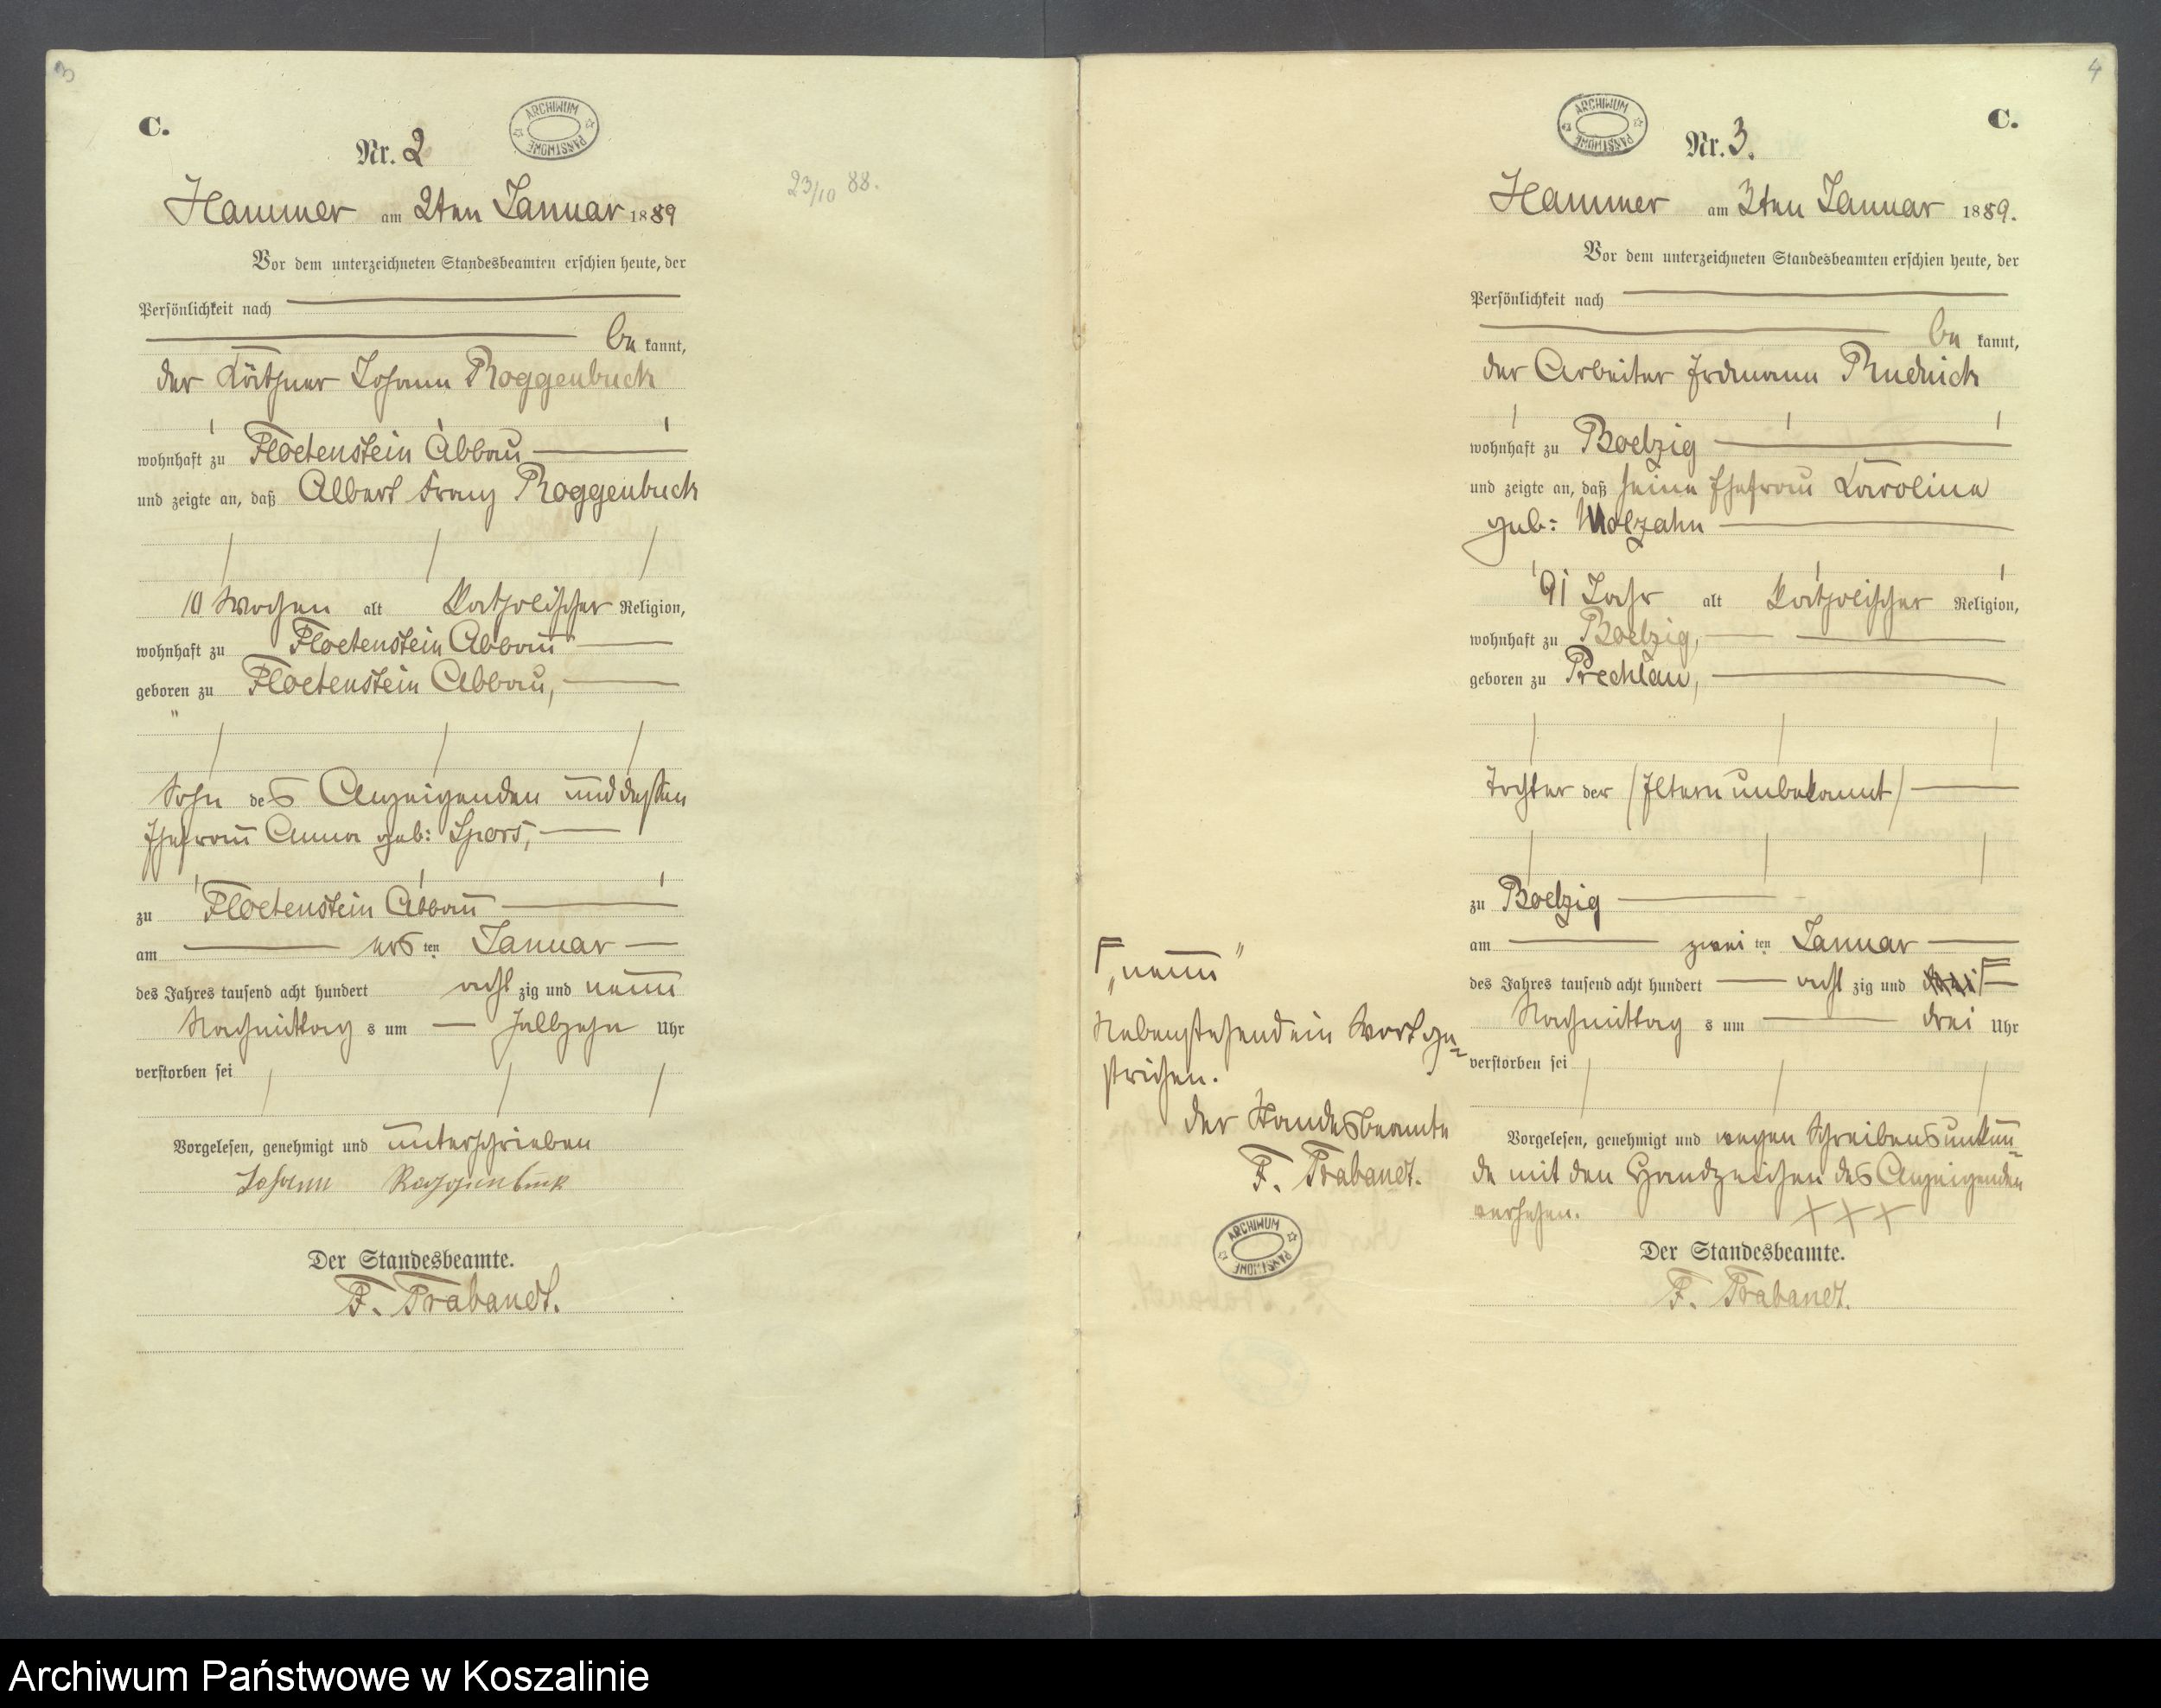 3
C.
ARCHIWUM PAŃSTWOWE
Nr. 2
23/10 88.
Hammer am 2ten Januar 1889
Vor dem unterzeichneten Standesbeamten erschien heute, der
Persönlichkeit nach
be kannt,
der Käthner Johann Roggenbuck
wohnhaft zu Floetenstein Abbau
und zeigte an, daß Albert Franz Roggenbuck
10 Wochen alt katholischer Religion,
wohnhaft zu Floetenstein Abbau
geboren zu Floetenstein Abbau,
Sohn des Anzeigenden und dessen
Ehefrau Anna geb: Spors,
zu Floetenstein Abbau
am ersten Januar
des Jahres tausend acht hundert acht zig und neun
Nachmittag s um halbzehn Uhr
verstorben sei
Vorgelesen, genehmigt und unterschrieben
Johann Roggenbuck
Der Standesbeamte.
F. Trabandt.
4
C.
ARCHIWUM PAŃSTWOWE
Nr. 3.
Hammer am 3ten Januar 1889.
Vor dem unterzeichneten Standesbeamten erschien heute, der
Persönlichkeit nach
be kannt,
der Arbeiter Erdmann Rudnick
wohnhaft zu Boelzig
und zeigte an, daß seine Ehefrau Karoline
geb: Wolzahn
91 Jahr alt katholischer Religion,
wohnhaft zu Boelzig,
geboren zu Prechlau,
Tochter der (Eltern unbekannt)
zu Boelzig
am zwei ten Januar
des Jahres tausend acht hundert acht zig und
Nachmittag s um drei Uhr
verstorben sei
Vorgelesen, genehmigt und wegen Schreibensunkun=
de mit den Handzeichen des Anzeigenden
versehen. XXX
Der Standesbeamte.
F. Trabandt.
„neun"
Nebenstehend ein Wort ge=
strichen.
Der Standesbeamte
F. Trabandt.
ARCHIWUM PAŃSTWOWE
Archiwum Państwowe w Koszalinie